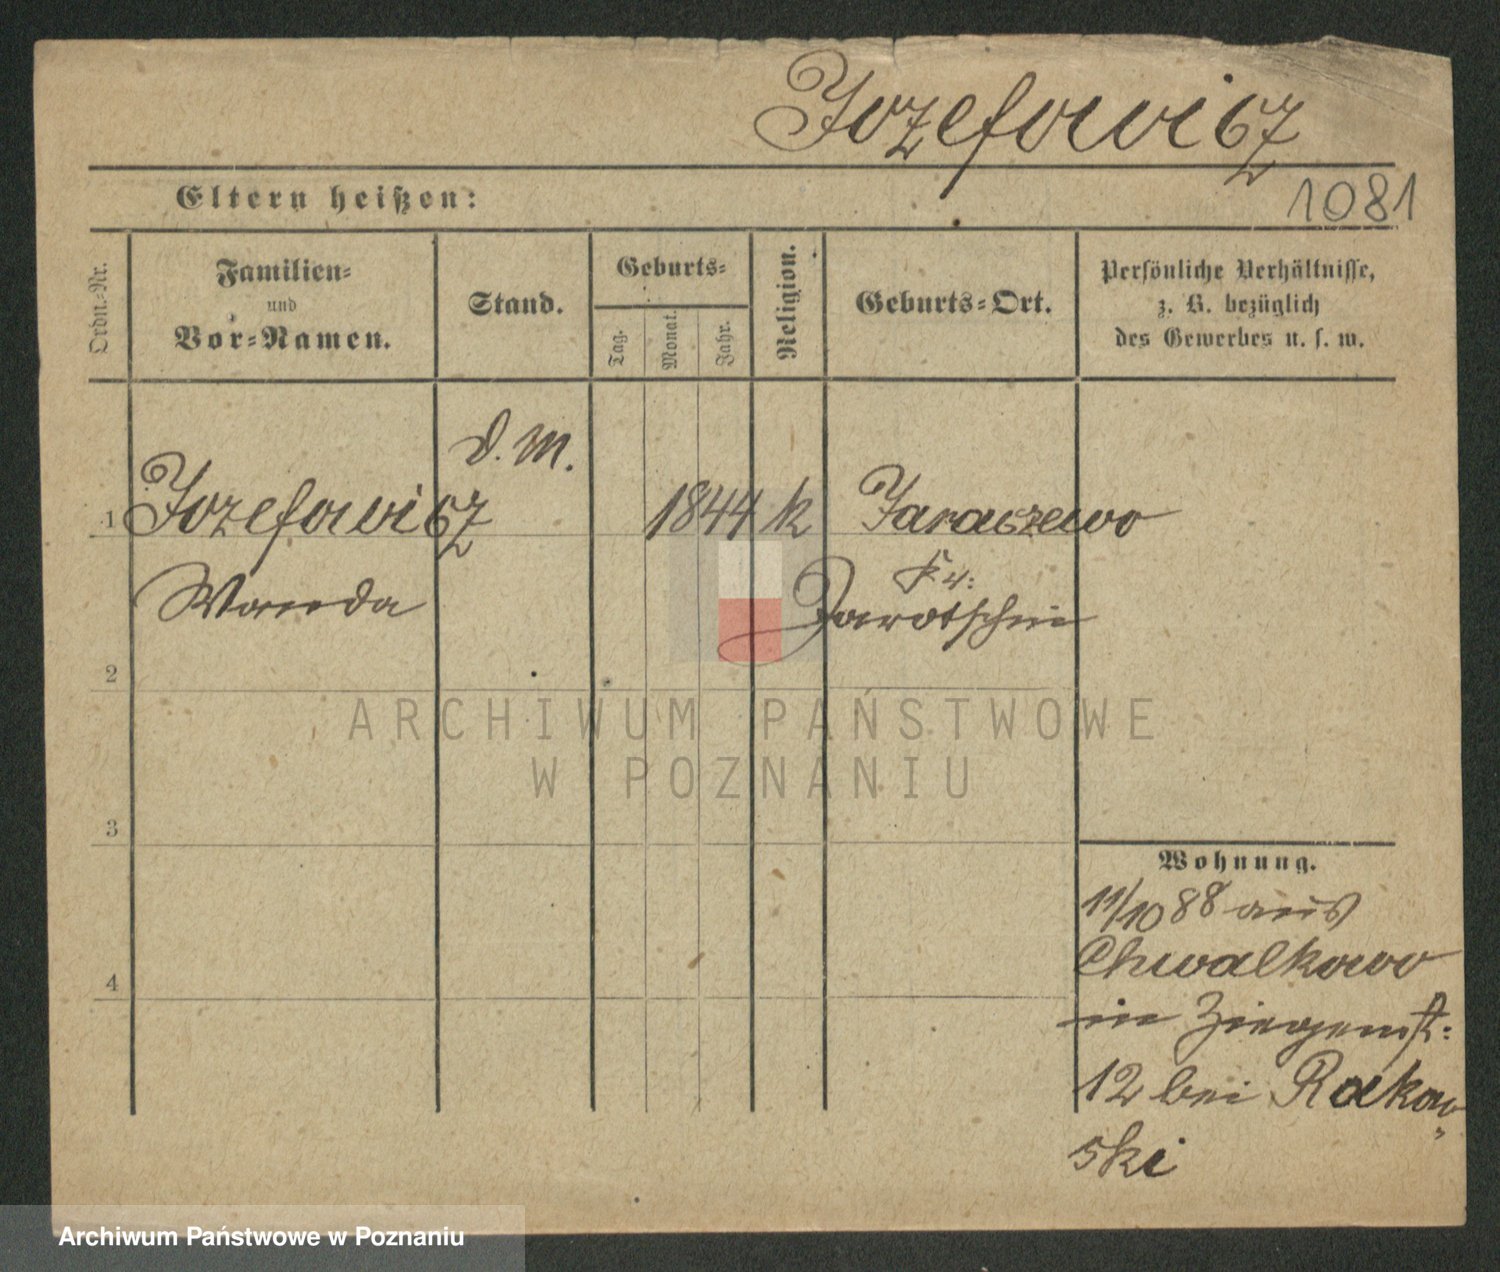 Jozefowicz
Eltern heißen:
1081
Ordn.-Nr.
Familien-
und
Vor-Namen.
Stand.
Geburts-
Tag.
Monat.
Jahr.
Religion.
Geburts-Ort.
Persönliche Verhältnisse,
z. B. bezüglich
des Gewerbes u. s. w.
d. M.
1 Jozefowicz 1844 k Jaraczewo
Wanda Kr:
Jarotschin
2
3
4
Wohnung.
11/10 88 aus
Chwalkowo
in Ziegenst:
12 bei Rakow-
ski
ARCHIWUM PAŃSTWOWE
W POZNANIU
Archiwum Państwowe w Poznaniu